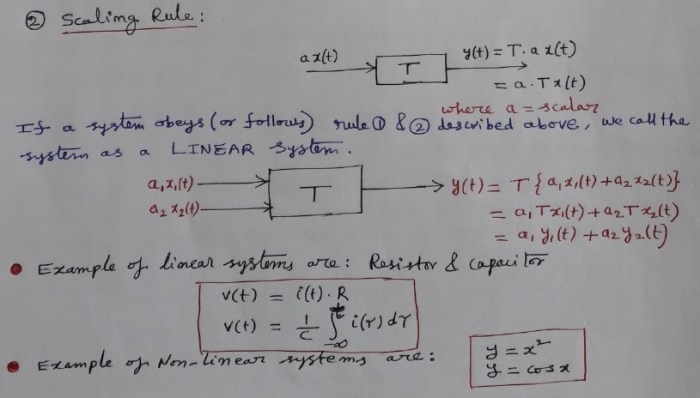 ② Scaling Rule:
ax(t) T y(t) = T. a x(t)
= a. Tx(t)
where a = scalar
If a system obeys (or follows) rule ① & ② described above, we call the
system as a LINEAR System.
a₁x₁(t) T y(t) = T { a₁x₁(t) + a₂x₂(t)}
a₂x₂(t) = a₁Tx₁(t) + a₂Tx₂(t)
= a₁y₁(t) + a₂y₂(t)
• Example of linear systems are: Resistor & capacitor
v(t) = i(t). R
v(t) = 1/C ∫_{-∞}^{t} i(τ) dτ
• Example of Non-linear systems are: y = x²
y = cos x